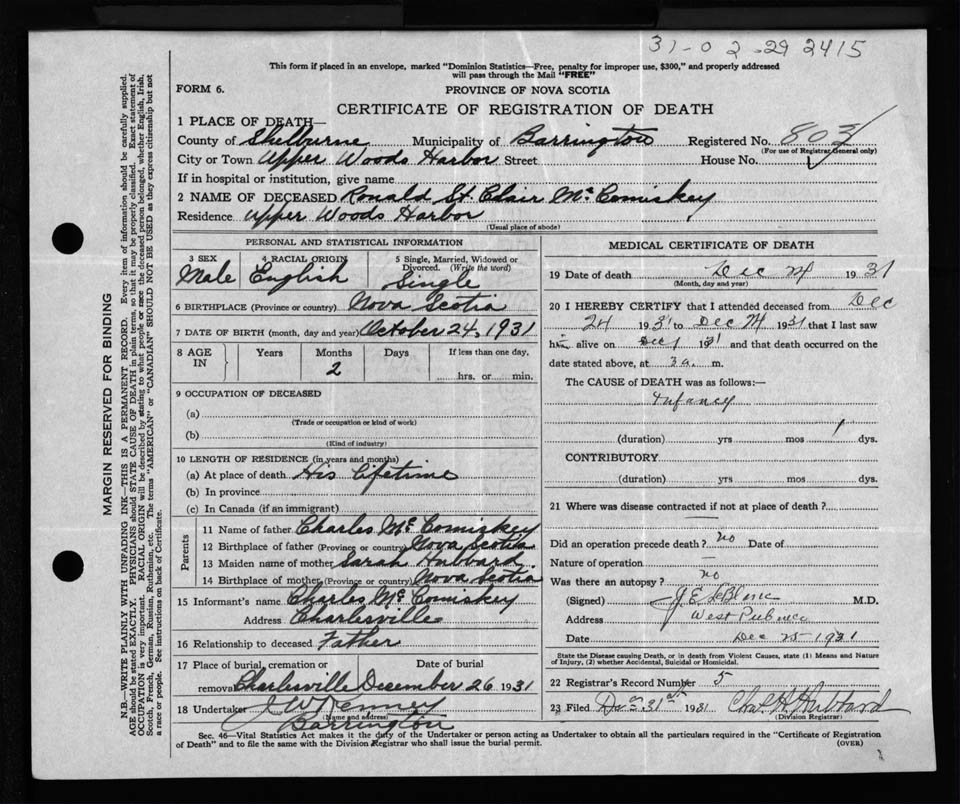 31-02-29 2415
This form if placed in an envelope, marked "Dominion Statistics—Free, penalty for improper use, $300," and properly addressed
will pass through the Mail "FREE"
FORM 6.
PROVINCE OF NOVA SCOTIA
CERTIFICATE OF REGISTRATION OF DEATH
1 PLACE OF DEATH—
County of Shelburne Municipality of Barrington Registered No. 803
(For use of Registrar General only)
City or Town Upper Woods Harbor Street House No.
If in hospital or institution, give name
2 NAME OF DECEASED Ronald St. Clair McComiskey
Residence Upper Woods Harbor
(Usual place of abode)
PERSONAL AND STATISTICAL INFORMATION
3 SEX 4 RACIAL ORIGIN 5 Single, Married, Widowed or
Divorced. (Write the word)
Male English Single
6 BIRTHPLACE (Province or country) Nova Scotia
7 DATE OF BIRTH (month, day and year) October 24, 1931
8 AGE IN Years Months Days If less than one day,
2 hrs. or min.
9 OCCUPATION OF DECEASED
(a)
(Trade or occupation or kind of work)
(b)
(Kind of industry)
10 LENGTH OF RESIDENCE (in years and months)
(a) At place of death His Lifetime
(b) In province
(c) In Canada (if an immigrant)
Parents
11 Name of father Charles McComiskey
12 Birthplace of father (Province or country) Nova Scotia
13 Maiden name of mother Sarah Hubbard
14 Birthplace of mother (Province or country) Nova Scotia
15 Informant's name Charles McComiskey
Address Charlesville
16 Relationship to deceased Father
17 Place of burial, cremation or Date of burial
removal Charlesville December 26 1931
18 Undertaker J W Kenney
(Name and address)
Barrington
MEDICAL CERTIFICATE OF DEATH
19 Date of death Dec 1931
(Month, day and year)
20 I HEREBY CERTIFY that I attended deceased from Dec
24 1931 to Dec 1931 that I last saw
h alive on Dec 1931 and that death occurred on the
date stated above, at 3 a. m.
The CAUSE of DEATH was as follows:—
Infancy
(duration) yrs mos 1 dys.
CONTRIBUTORY
(duration) yrs mos dys.
21 Where was disease contracted if not at place of death?
Did an operation precede death? no Date of
Nature of operation —
Was there an autopsy? no
(Signed) J. E. LeBlanc M.D.
Address West Pubnico
Date Dec 25-1931
State the Disease causing Death, or in death from Violent Causes, state (1) Means and Nature
of Injury, (2) whether Accidental, Suicidal or Homicidal.
22 Registrar's Record Number 5
23 Filed Dec 31st 1931 Chas. H. Hubbard
(Division Registrar)
Sec. 46—Vital Statistics Act makes it the duty of the Undertaker or person acting as Undertaker to obtain all the particulars required in the "Certificate of Registration
of Death" and to file the same with the Division Registrar who shall issue the burial permit. (OVER)
MARGIN RESERVED FOR BINDING
N.B.—WRITE PLAINLY WITH UNFADING INK—THIS IS A PERMANENT RECORD. Every item of information should be carefully supplied.
AGE should be stated EXACTLY. PHYSICIANS should STATE CAUSE OF DEATH in plain terms, so that it may be properly classified. Exact statement of
OCCUPATION is very important. RACIAL ORIGIN will be described by stating to what people or race the deceased person belonged, whether English, Irish,
Scotch, French, German, Russian, Ruthenian, etc. The terms "AMERICAN" or "CANADIAN" SHOULD NOT BE USED as they express citizenship but not
a race or people. See instructions on back of Certificate.